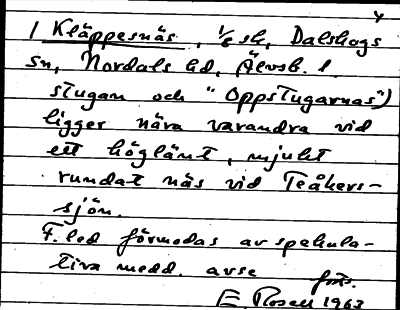 1 Kläppesnäs, 1/6 sk, Dalskogs
sn, Nordals hd, Älvsb. l.
stugan och "Oppstugarnas")
ligger nära varandra vid
ett höglänt, mjukt
rundat näs vid Teåkers-
sjön.
F. led förmodas av spekula-
tiva medd. avse
E. Rosell 1963